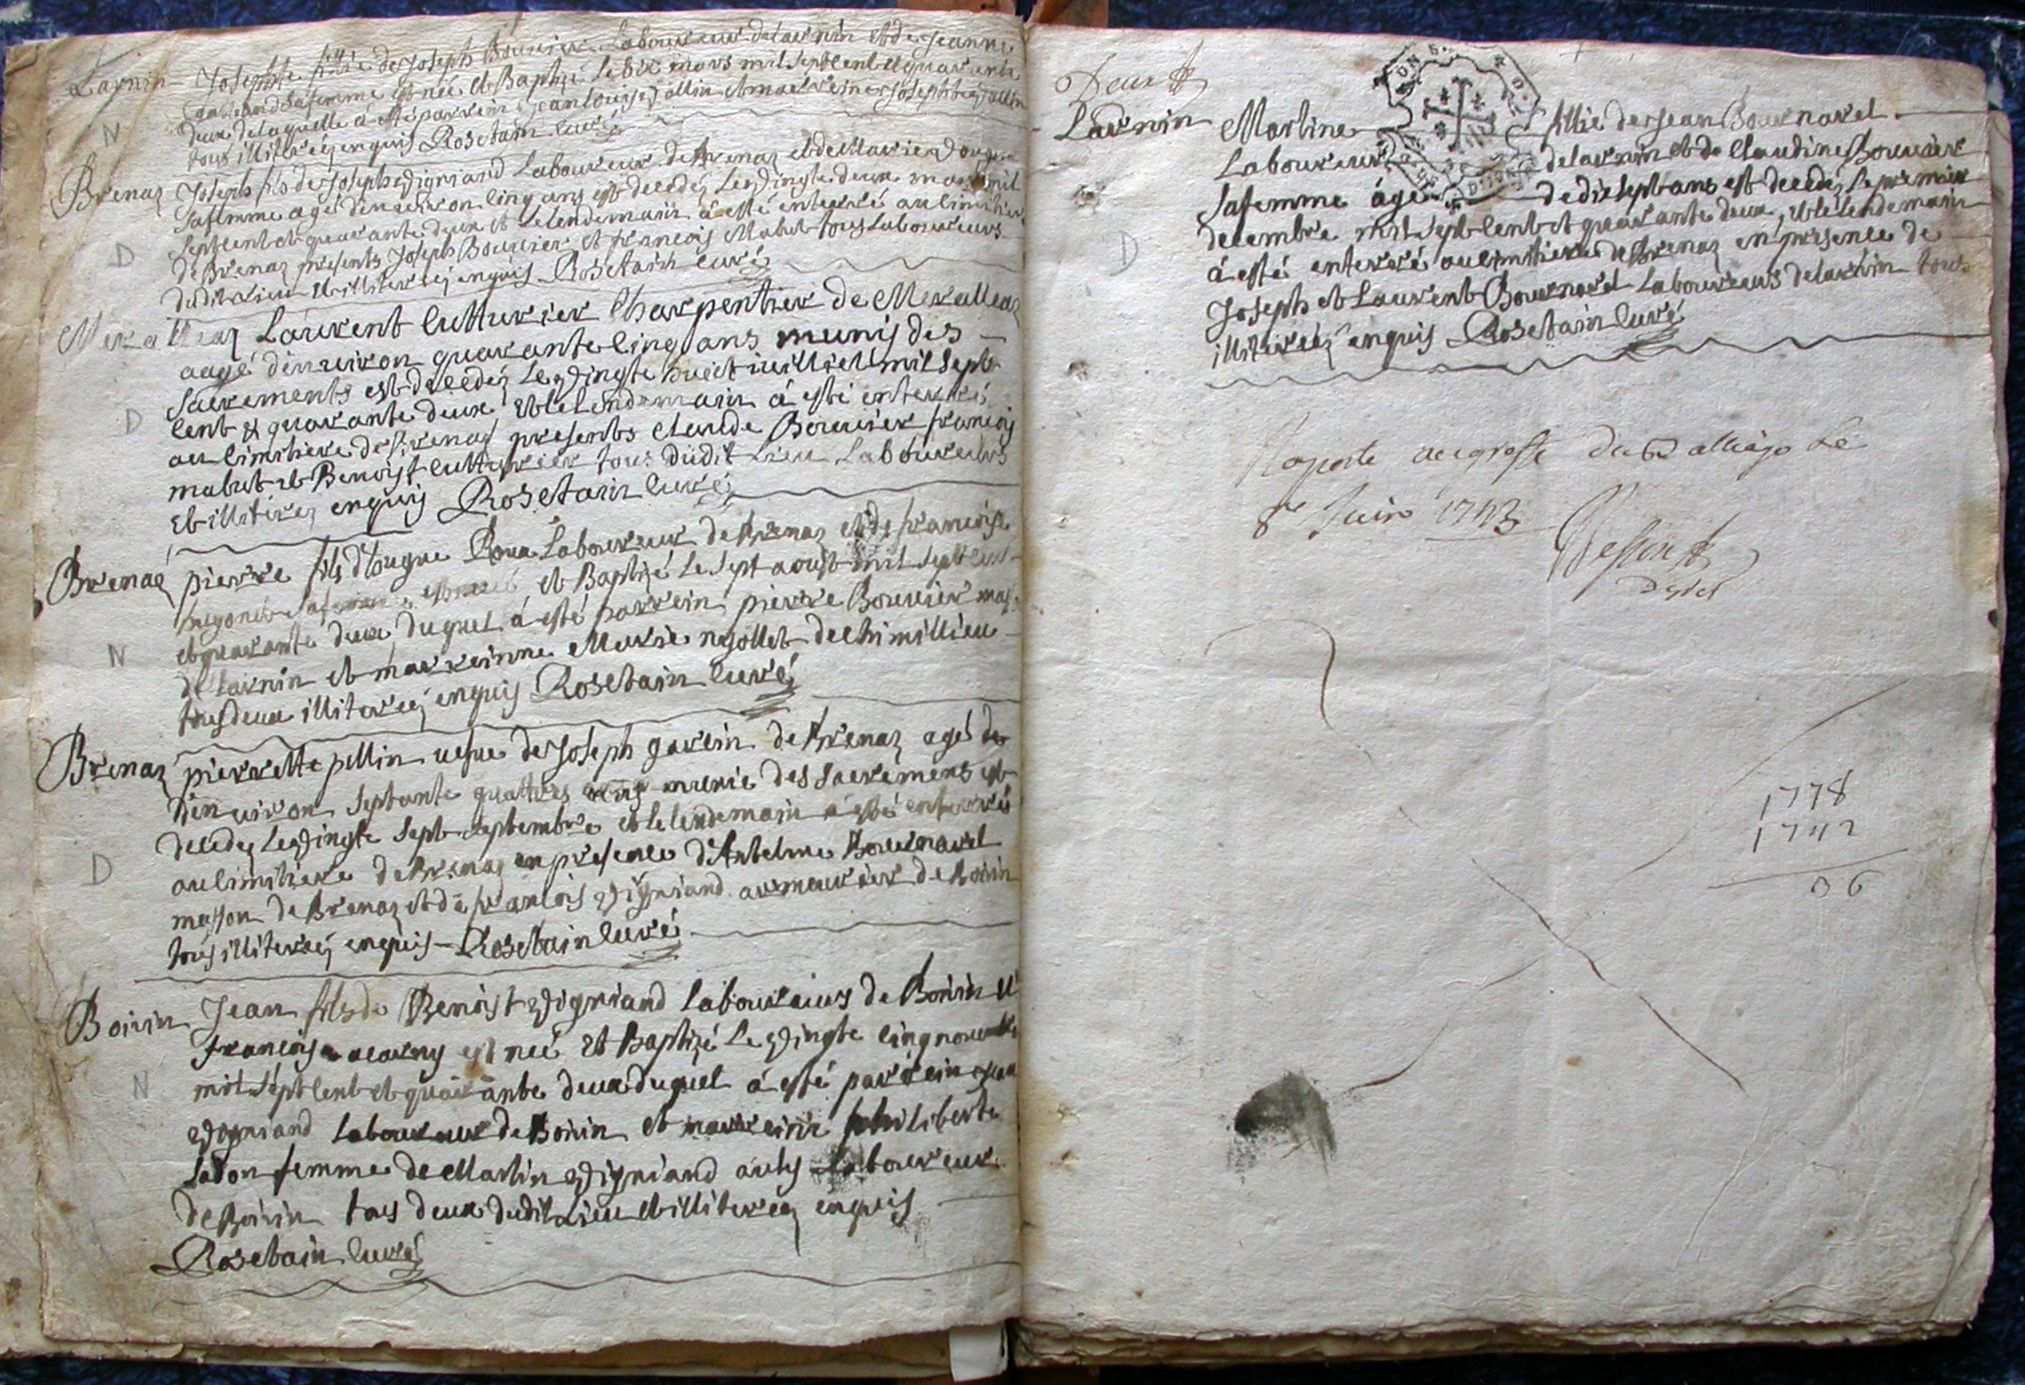 Lavnin Josephte fillie de Joseph Bouvier Laboureur de Lavnin et de Jeanne
safemme est née et Baptizé le dix mars mil septcent et quarante
deux de laquelle á esté parrein Jean Louis et marreine Josephte
tous illiterez enquis Rosetain curé
N
Brenaz Joseph fils de Joseph Vigniand Laboureur de Brenaz et de Marie
safemme agé d'enuiron cinq ans est decedez le vingte deux mars mil
septcent et quarante deux et le lendemain á esté enterré au cimitiere
de Brenaz presents Joseph Bouvier et francois Mabut tous Laboureurs
D
dudit Lieu et illiterez enquis Rosetain curé
Laurent Cutturier Charpentier de
aagé d'enuiron quarante cinq ans munis des
sacrements est decedez le vingte huict iuilliet mil sept
cent & quarante deux et le lendemain á esté enterré
D
au cimitiere de Brenaz presents Claude Bouvier francois
mabut et Benoist Cutturier tous dudit Lieu Laboureurs
et illiterez enquis Rosetain curé
Brenaz pierre fils d'ougue Roux Laboureur de Brenaz et de francoise
safemme est née et Baptizé le sept aoust mil septcent
et quarante deux duquel á esté parrein pierre Bouvier
N
de Lavnin et marreinne Marie nejollet de chimillieu
tous deux illiterez enquis Rosetain curé
Brenaz pierrette pellin uefue de Joseph garein de Brenaz agé de
d'enuiron septante quattres ans munie des sacremens est
decedez le vingte sept septembre et le lendemain á esté enterré
D
au cimitiere de Brenaz en presence d'Antelme Bournavel
masson de Brenaz et de francois Vigniand armeurier de Boirin
tous illiterez enquis Rosetain curé
Boirin Jean fils de Benoist Vigniand laboureur de Boirin et
francoise est née et Baptizé le vingte cinq nouembre
N
mil septcent et quarante deux duquel á esté parrein Jean
Vigniand laboureur de Boirin et marreine philiberte
femme de Martin Vigniand laboureur
de Boirin tous deux dudit Lieu et illiterez enquis
Rosetain curé
Deux
Lavnin Martine fillie de Jean Bournavel
Laboureur de Lavnin et de Claudine Bouvier
safemme áge de dix sept ans est decedez le premier
decembre mil septcent et quarante deux, et le lendemain
D
á esté enterré au cimitiere de Brenaz en presence de
Joseph et Laurent Bournavel Laboureurs de Lavnin tous
illiterez enquis Rosetain curé
au greffe du le
8e Juin 1743
1778
1742
36